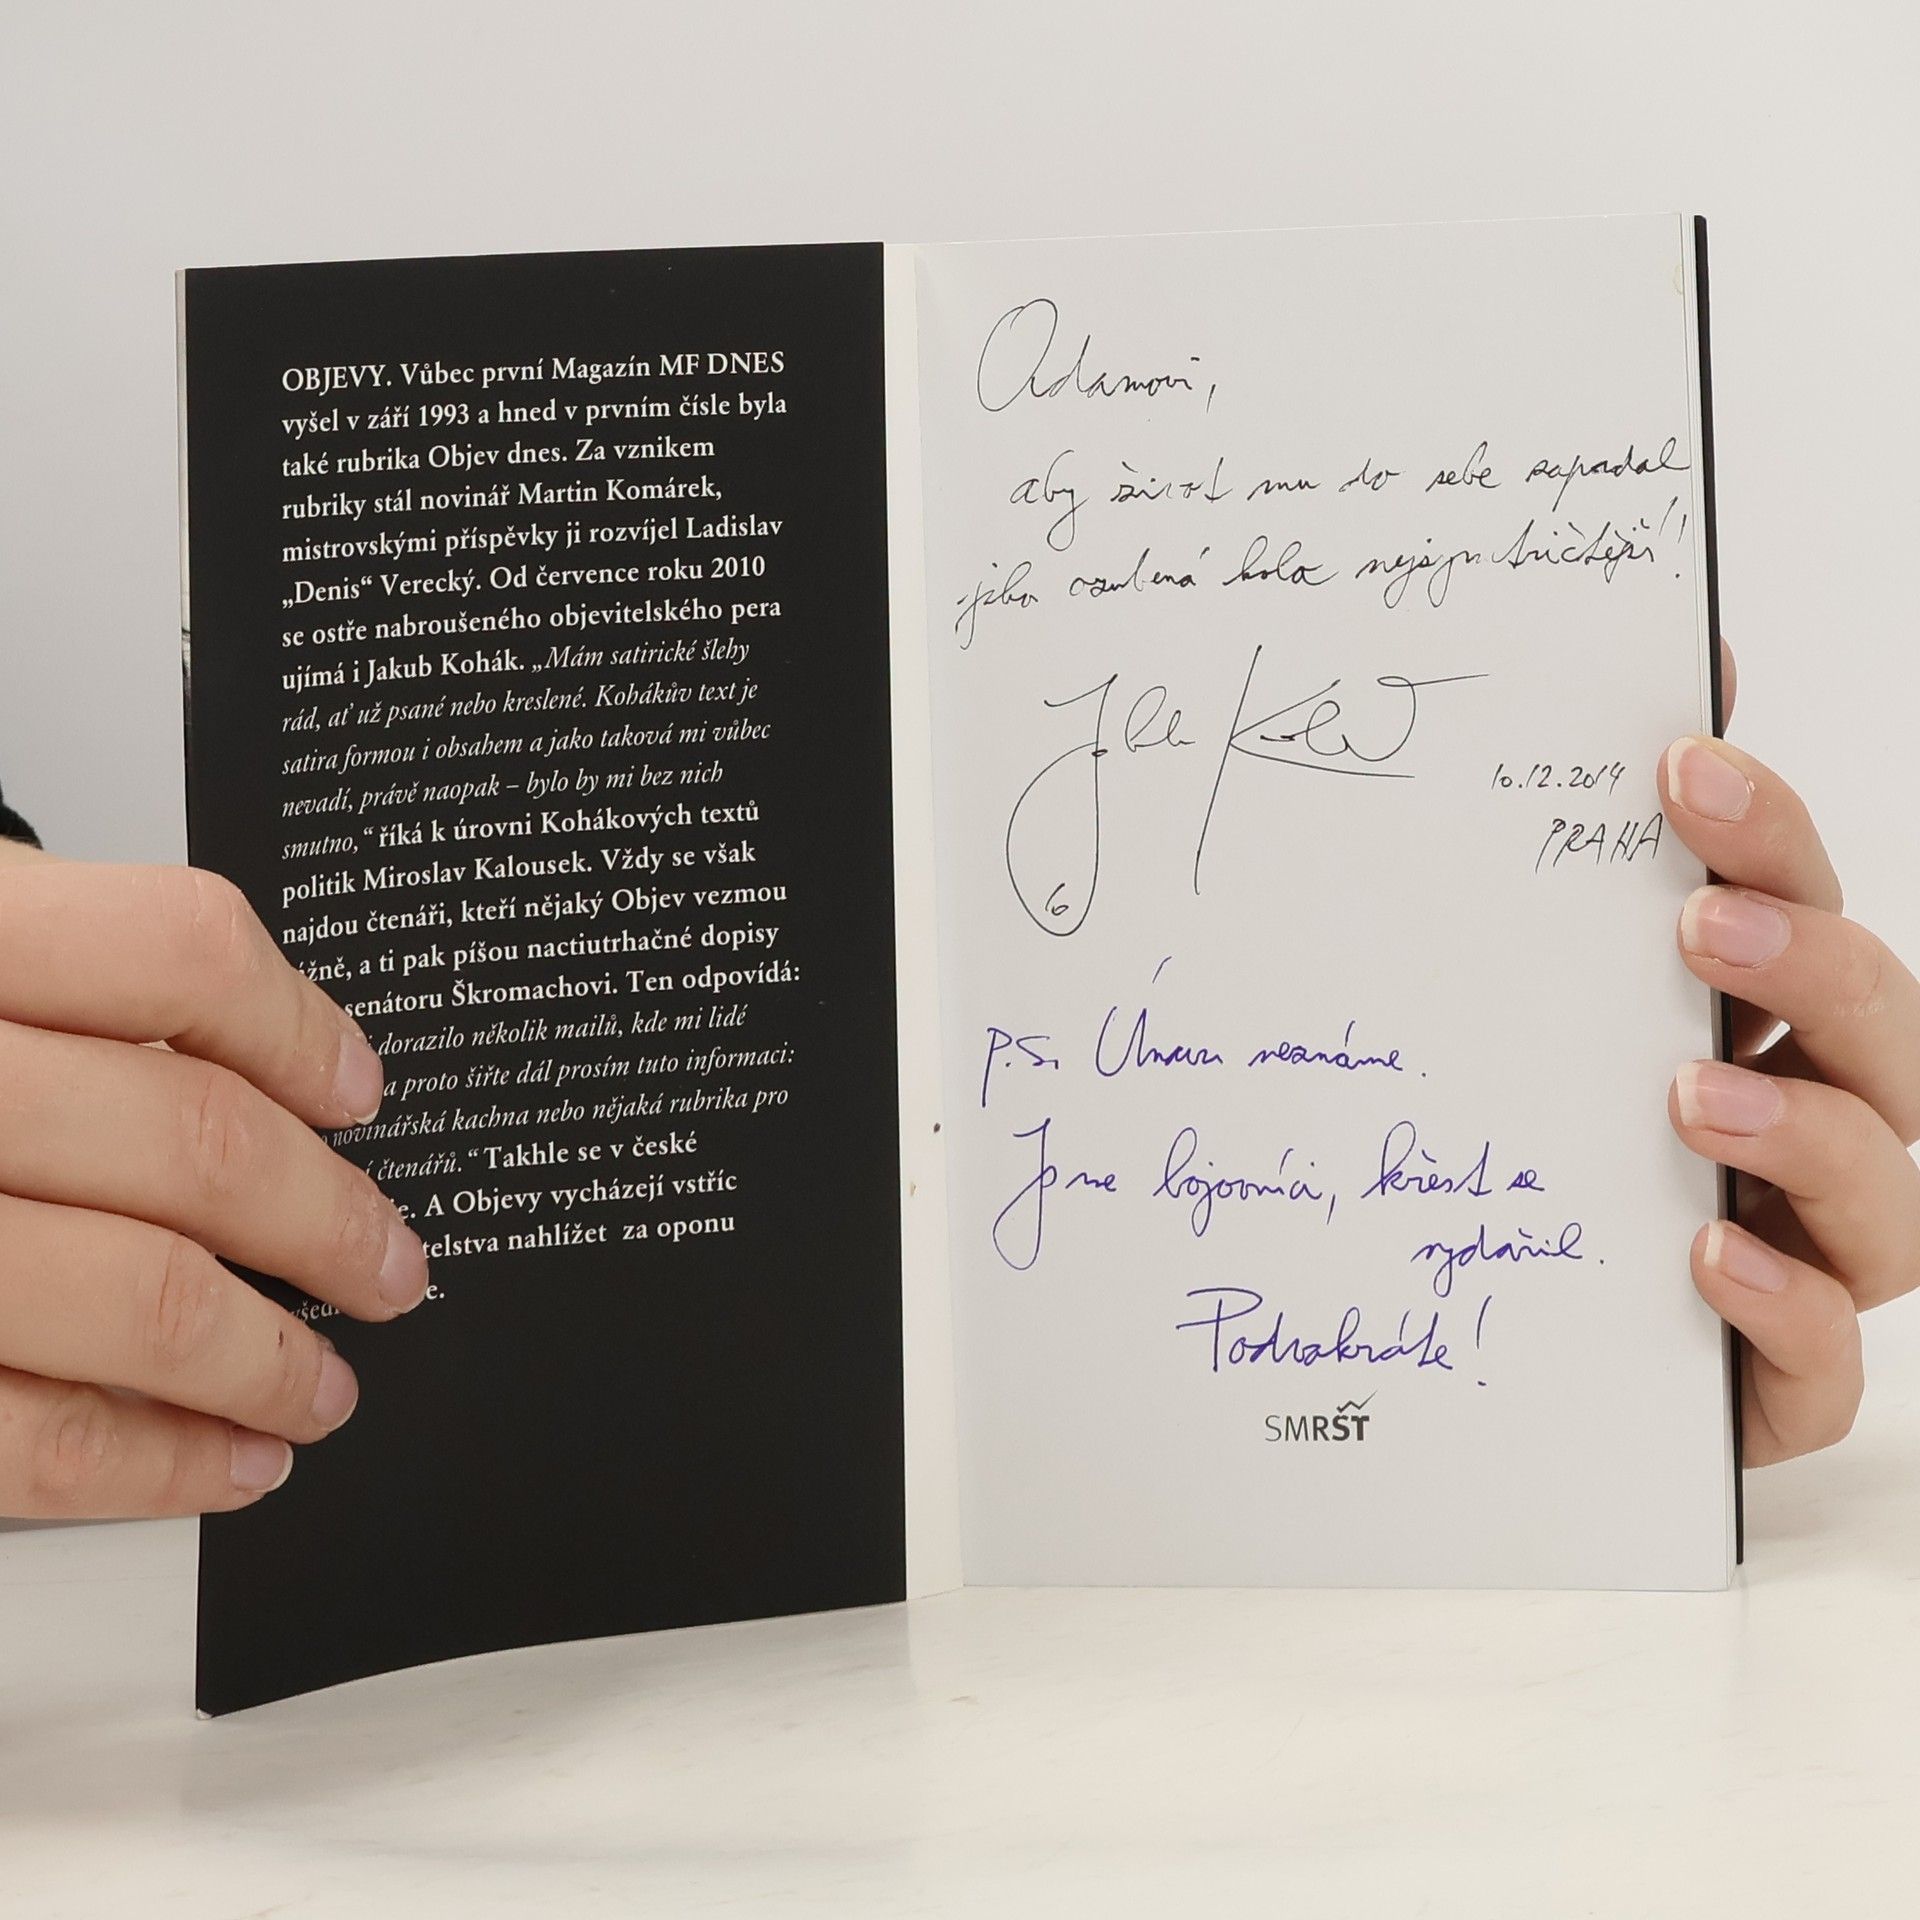 OBJEVY. Vůbec první Magazín MF DNES
vyšel v září 1993 a hned v prvním čísle byla
také rubrika Objev dnes. Za vznikem
rubriky stál novinář Martin Komárek,
mistrovskými příspěvky ji rozvíjel Ladislav
„Denis“ Verecký. Od července roku 2010
se ostře nabroušeného objevitelského pera
ujímá i Jakub Kohák. „Mám satirické šlehy
rád, ať už psané nebo kreslené. Kohákův text je
satira formou i obsahem a jako taková mi vůbec
nevadí, právě naopak – bylo by mi bez nich
smutno,“ říká k úrovni Kohákových textů
politik Miroslav Kalousek. Vždy se však
najdou čtenáři, kteří nějaký Objev vezmou
ážně, a ti pak píšou nactiutrhačné dopisy
senátoru Škromachovi. Ten odpovídá:
dorazilo několik mailů, kde mi lidé
a proto šiřte dál prosím tuto informaci:
novinářská kachna nebo nějaká rubrika pro
čtenářů.“ Takhle se v české
e. A Objevy vycházejí vstříc
telstva nahlížet za oponu
e.
Adamovi,
aby život mu do sebe zapadal
jako ozubená kola
Jakub Kohák
10.12.2014
PRAHA
P.S. Únavu neznáme.
Jsme bojovníci, křest se
vydařil.
Podvakráte!
SMRŠŤ